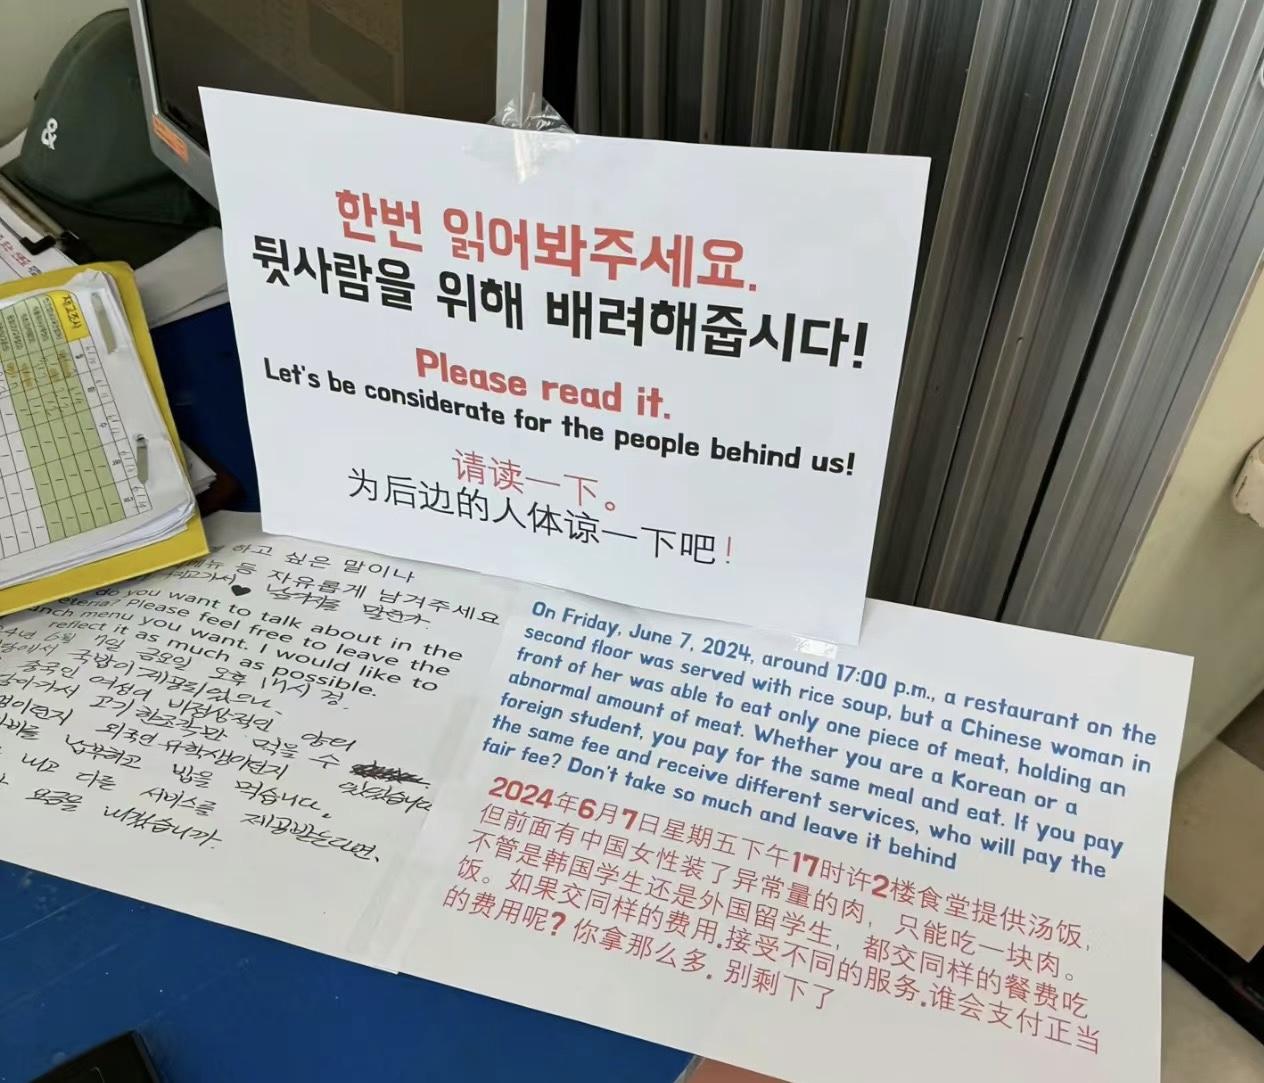 &
재고조사
한번 읽어봐주세요.
뒷사람을 위해 배려해줍시다!
Please read it.
Let's be considerate for the people behind us!
请读一下。
为后边的人体谅一下吧!
하고 싶은 말이나
메뉴 등 자유롭게 남겨주세요
♥
do you want to talk about in the
Please feel free to leave the
menu you want. I would like to
reflect it as much as possible.
6월 7일 금요일 오후 17시 경.
국밥이 제공되었으나
중국인 여성이 비정상적인 양의
고기 한조각만 먹을 수
있었습니다
외국인 유학생이던지
납부하고 밥을 먹습니다.
내고 다른 서비스를 제공받는다면,
요금을 내겠습니까.
On Friday, June 7, 2024, around 17:00 p.m., a restaurant on the
second floor was served with rice soup, but a Chinese woman in
front of her was able to eat only one piece of meat, holding an
abnormal amount of meat. Whether you are a Korean or a
foreign student, you pay for the same meal and eat. If you pay
the same fee and receive different services, who will pay the
fair fee? Don't take so much and leave it behind
2024年6月7日星期五下午17时许2楼食堂提供汤饭,
但前面有中国女性装了异常量的肉, 只能吃一块肉。
不管是韩国学生还是外国留学生, 都交同样的餐费吃
饭。如果交同样的费用.接受不同的服务.谁会支付正当
的费用呢? 你拿那么多. 别剩下了